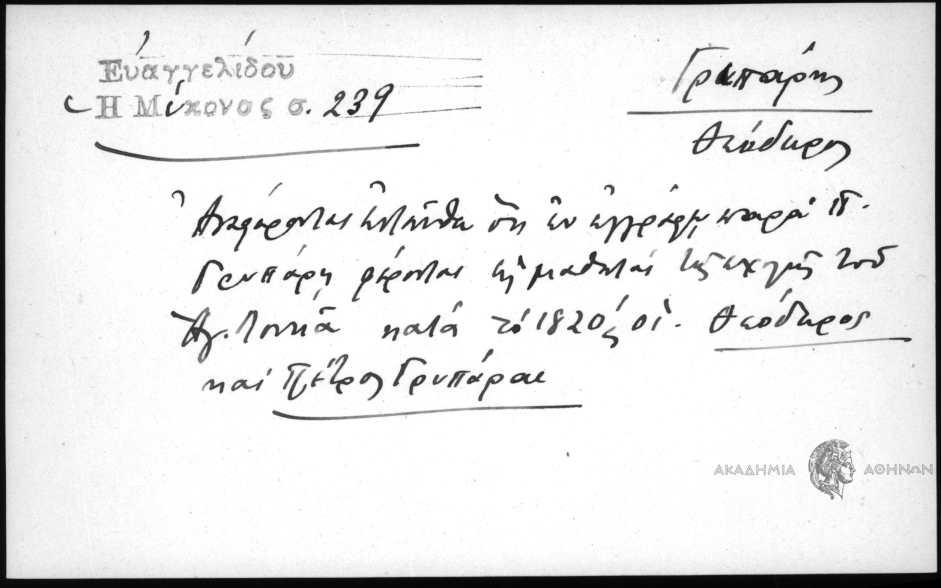 Εὐαγγελίδου
Ἡ Μύκονος σ. 239
Γρυπάρης
Θεόδωρος
Ἀναφέρονται ἐνταῦθα ὅτι ἐν ἐγγράφῳ παρὰ Π.
Γρυπάρῃ φέρονται ὡς μαθηταὶ τῆς σχολῆς τοῦ
Ἁγ. κατὰ τὸ 1820 οἱ. Θεόδωρος
καὶ Πέτρος Γρυπάραι
ΑΚΑΔΗΜΙΑ ΑΘΗΝΩΝ